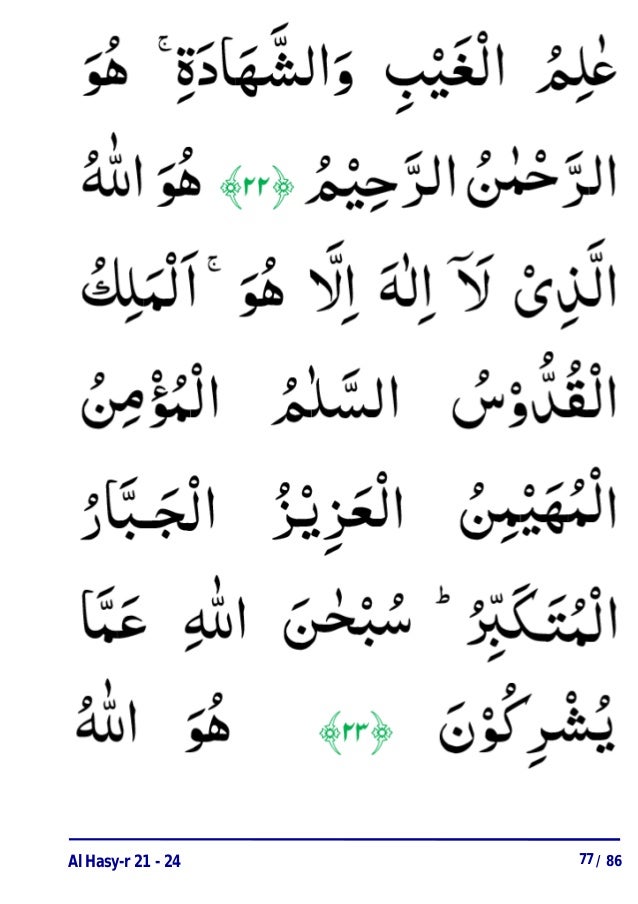 عٰلِمُ الْغَيْبِ وَالشَّهَادَةِ ۚ هُوَ
الرَّحْمٰنُ الرَّحِيْمُ ﴿٢٢﴾ هُوَ اللّٰهُ
الَّذِىْ لَآ اِلٰهَ اِلَّا هُوَ ۚ اَلْمَلِكُ
الْقُدُّوْسُ السَّلٰمُ الْمُؤْمِنُ
الْمُهَيْمِنُ الْعَزِيْزُ الْجَبَّارُ
الْمُتَكَبِّرُ ؕ سُبْحٰنَ اللّٰهِ عَمَّا
يُشْرِكُوْنَ ﴿٢٣﴾ هُوَ اللّٰهُ
Al Hasy-r 21 - 24 77 / 86